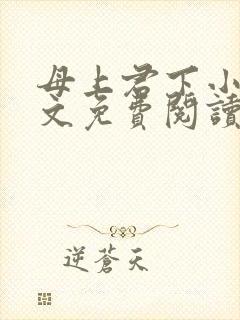 母上君下小
文免費閱讀
逆蒼天